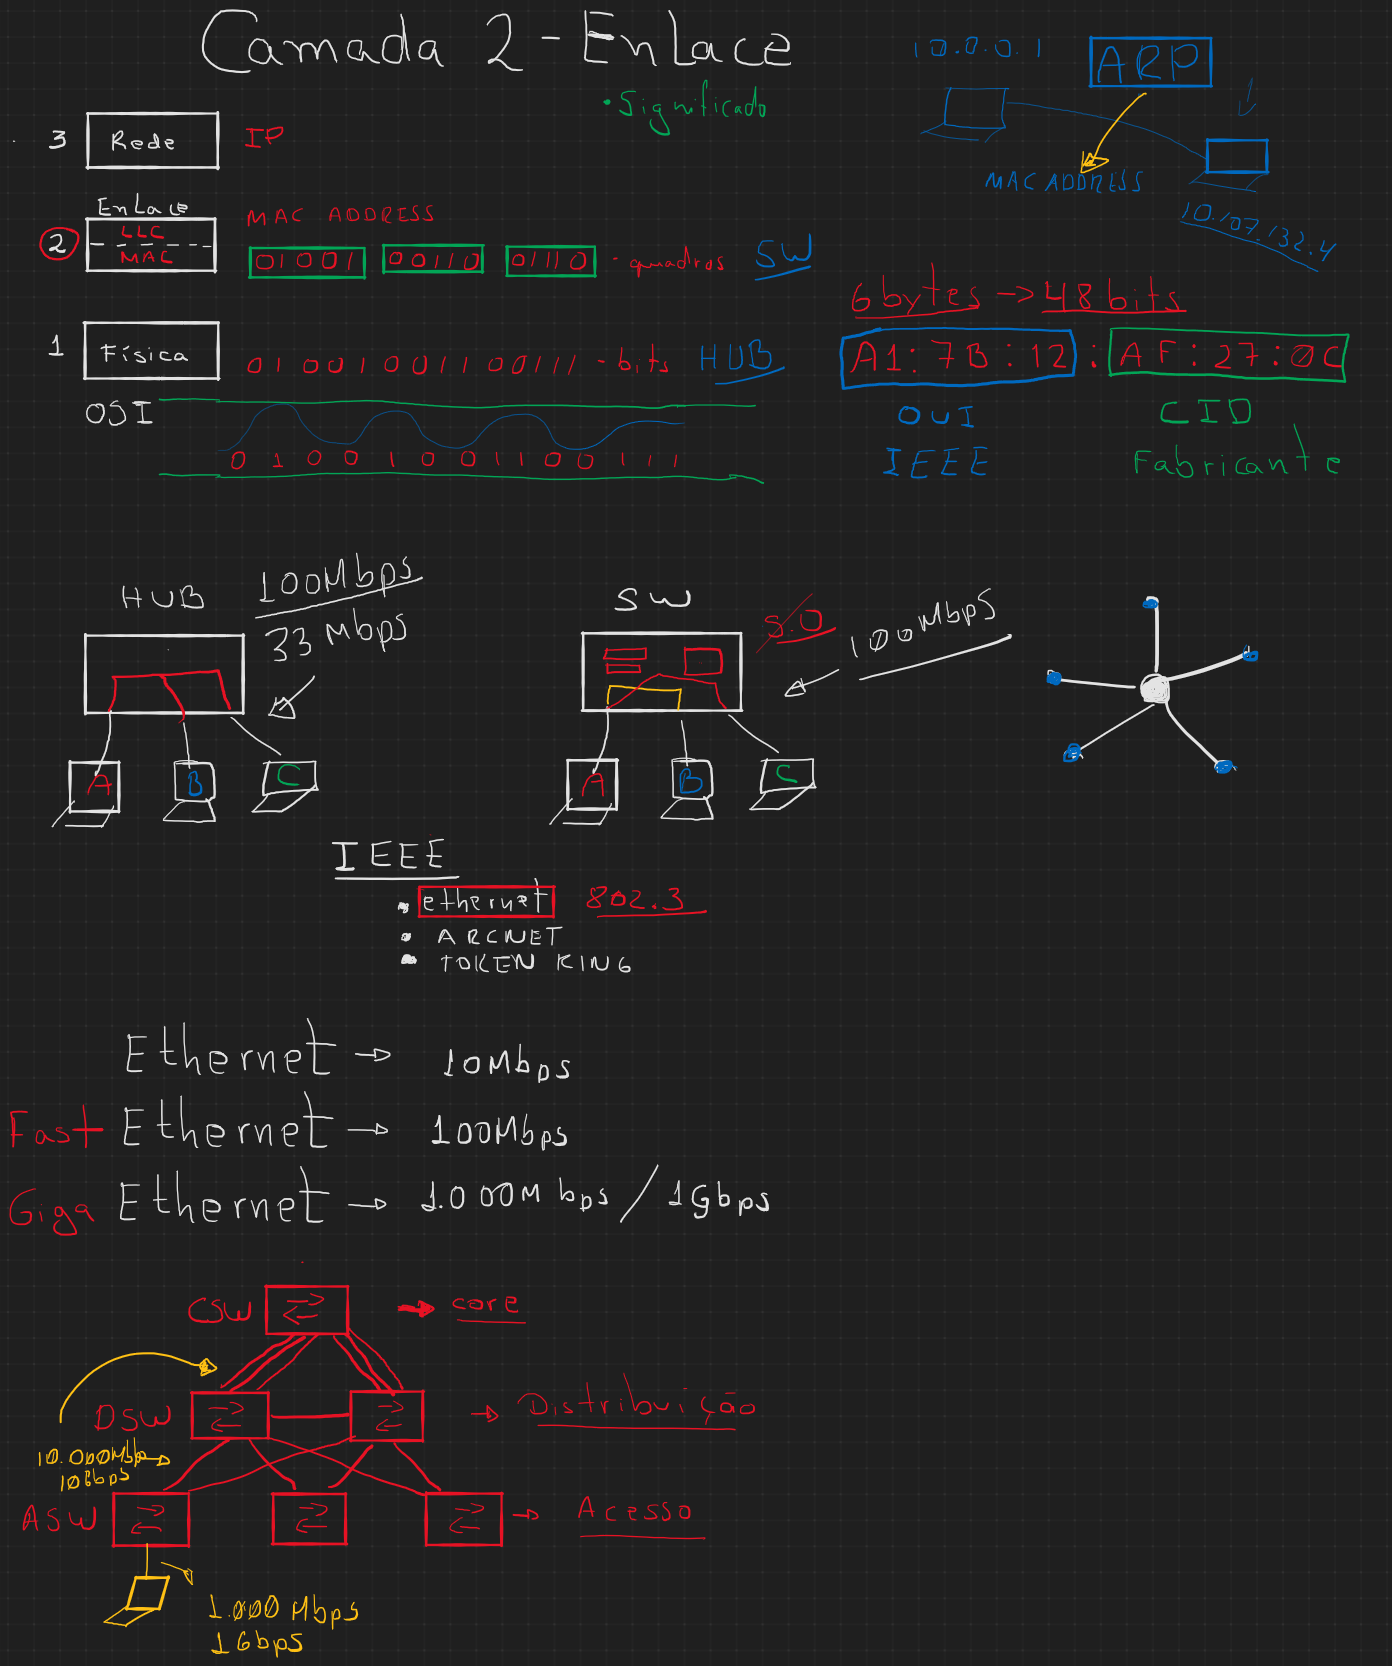 Camada 2 - Enlace
• Significado
10.0.0.1
ARP
MAC ADDRESS
10.107.132.4
3 Rede IP
Enlace
2 LLC MAC ADDRESS
MAC 01001 00110 01110 - quadros SW
1 Física 01001001100111 - bits HUB
OSI
0 1 0 0 1 0 0 1 1 0 0 1 1 1
6 bytes -> 48 bits
A1:7B:12 : AF:27:0C
OUI CID
IEEE Fabricante
HUB 100Mbps
33 Mbps
A B C
SW S.O 100Mbps
A B C
IEEE
• ethernet 802.3
• ARCNET
• TOKEN RING
Ethernet → 10Mbps
Fast Ethernet → 100Mbps
Giga Ethernet → 1.000Mbps / 1Gbps
CSW → core
DSW → Distribuição
10.000Mbp →
10Gbps
ASW → Acesso
1.000 Mbps
1Gbps